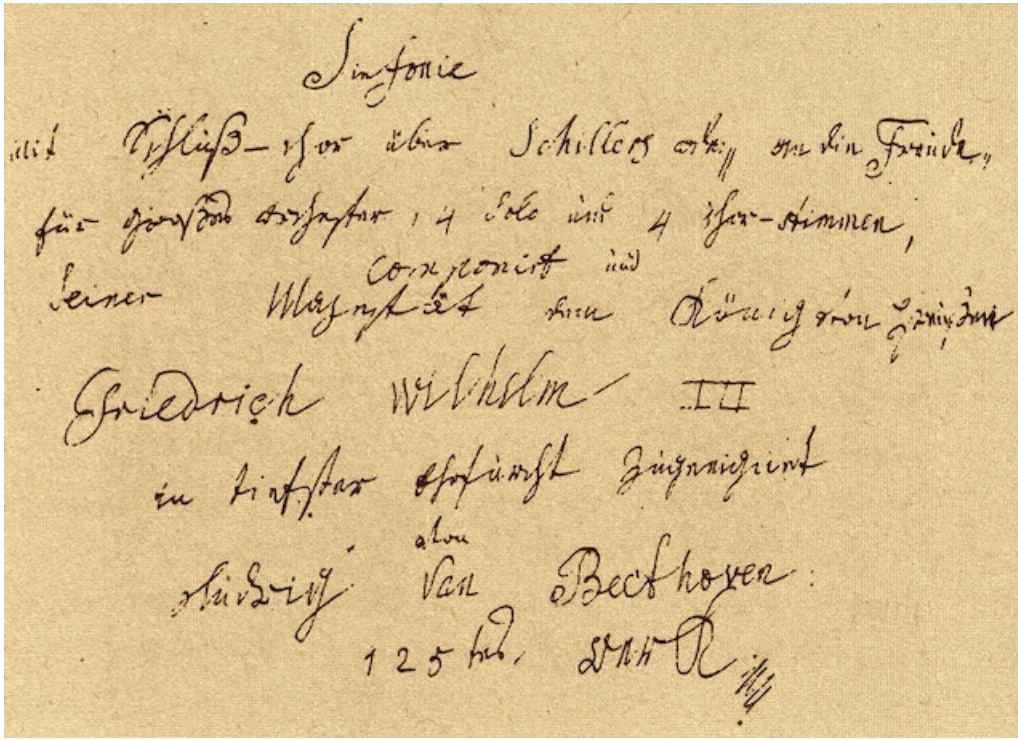 Sinfonie
mit Schluß-chor über Schillers ode: „an die Freude„
für großes orchester, 4 Solo und 4 chor-stimmen,
componirt und
Seiner Majestät dem König von Preußen
Friedrich Wilhelm III
in tiefster Ehrfurcht zugeeignet
von
Ludwig van Beethoven
125 tes Werk